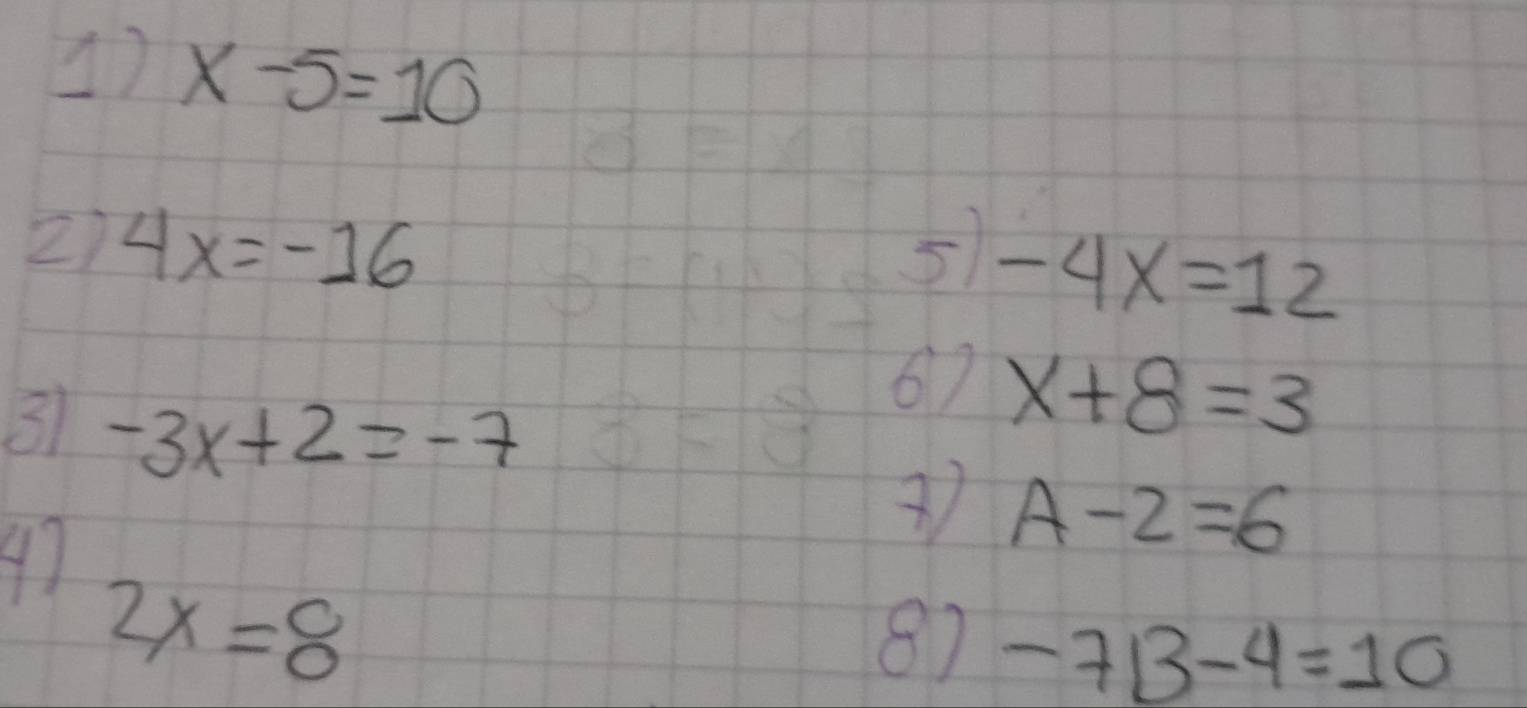 1) x - 5 = 10
2) 4x = -16
3) -3x + 2 = -7
4) 2x = 8
5) -4x = 12
6) x + 8 = 3
7) A - 2 = 6
8) -7B - 4 = 10